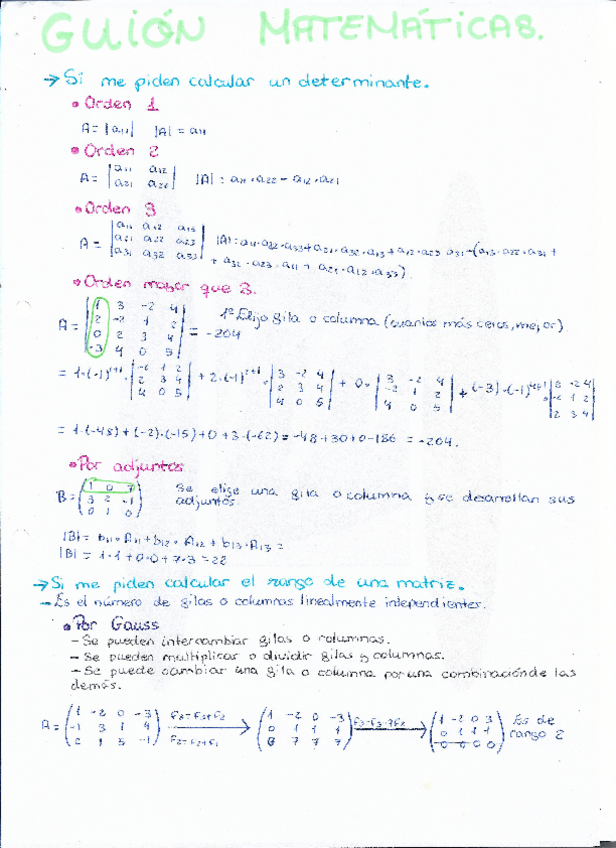 GUIÓN MATEMÁTICAS.
→ Si me piden calcular un determinante.
• Orden 1
A = |a11| |A| = a11
• Orden 2
A = |a11 a12| |A| : a11·a22 - a12·a21
|a21 a22|
• Orden 3
A = |a11 a12 a13| |A| : a11·a22·a33+a21·a32·a13+a12·a23·a31-(a13·a22·a31+
|a21 a22 a23| + a32·a23·a11+ a21·a12·a33)
|a31 a32 a33|
• Orden mayor que 3.
A = |1 3 -2 4| 1º Elijo fila o columna (cuantos más ceros, mejor)
|2 -2 1 2| = -204
|0 2 3 4|
|-3 4 0 5|
= 1·(-1)¹⁺¹·|-2 1 2| + 2·(-1)²⁺¹·|3 -2 4| + 0·|3 -2 4| + (-3)·(-1)⁴⁺¹|3 -2 4|
|2 3 4| |2 3 4| |-2 1 2| |-2 1 2|
|4 0 5| |4 0 5| |4 0 5| |2 3 4|
= 1·(-48)+(-2)·(-15)+0+3·(-62) = -48+30+0-186 = -204.
• Por adjuntos
B = (1 0 7) Se elige una fila o columna y se desarrollan sus
(3 2 -1) adjuntos.
(0 1 0)
|B| = b11·A11+b12·A12+b13·A13 =
|B| = 1·1+0·0+7·3 = 22
→ Si me piden calcular el rango de una matriz.
- Es el número de filas o columnas linealmente independientes.
• Por Gauss
- Se pueden intercambiar filas o columnas.
- Se pueden multiplicar o dividir filas y columnas.
- Se puede cambiar una fila o columna por una combinación de las
demás.
A = (1 -2 0 -3) → (1 -2 0 -3) → (1 -2 0 3) Es de
(-1 3 1 4) F2=F2+F1 (0 1 1 1) (0 1 1 1) rango 2
(2 1 5 -1) (0 7 7 7) (0 0 0 0)